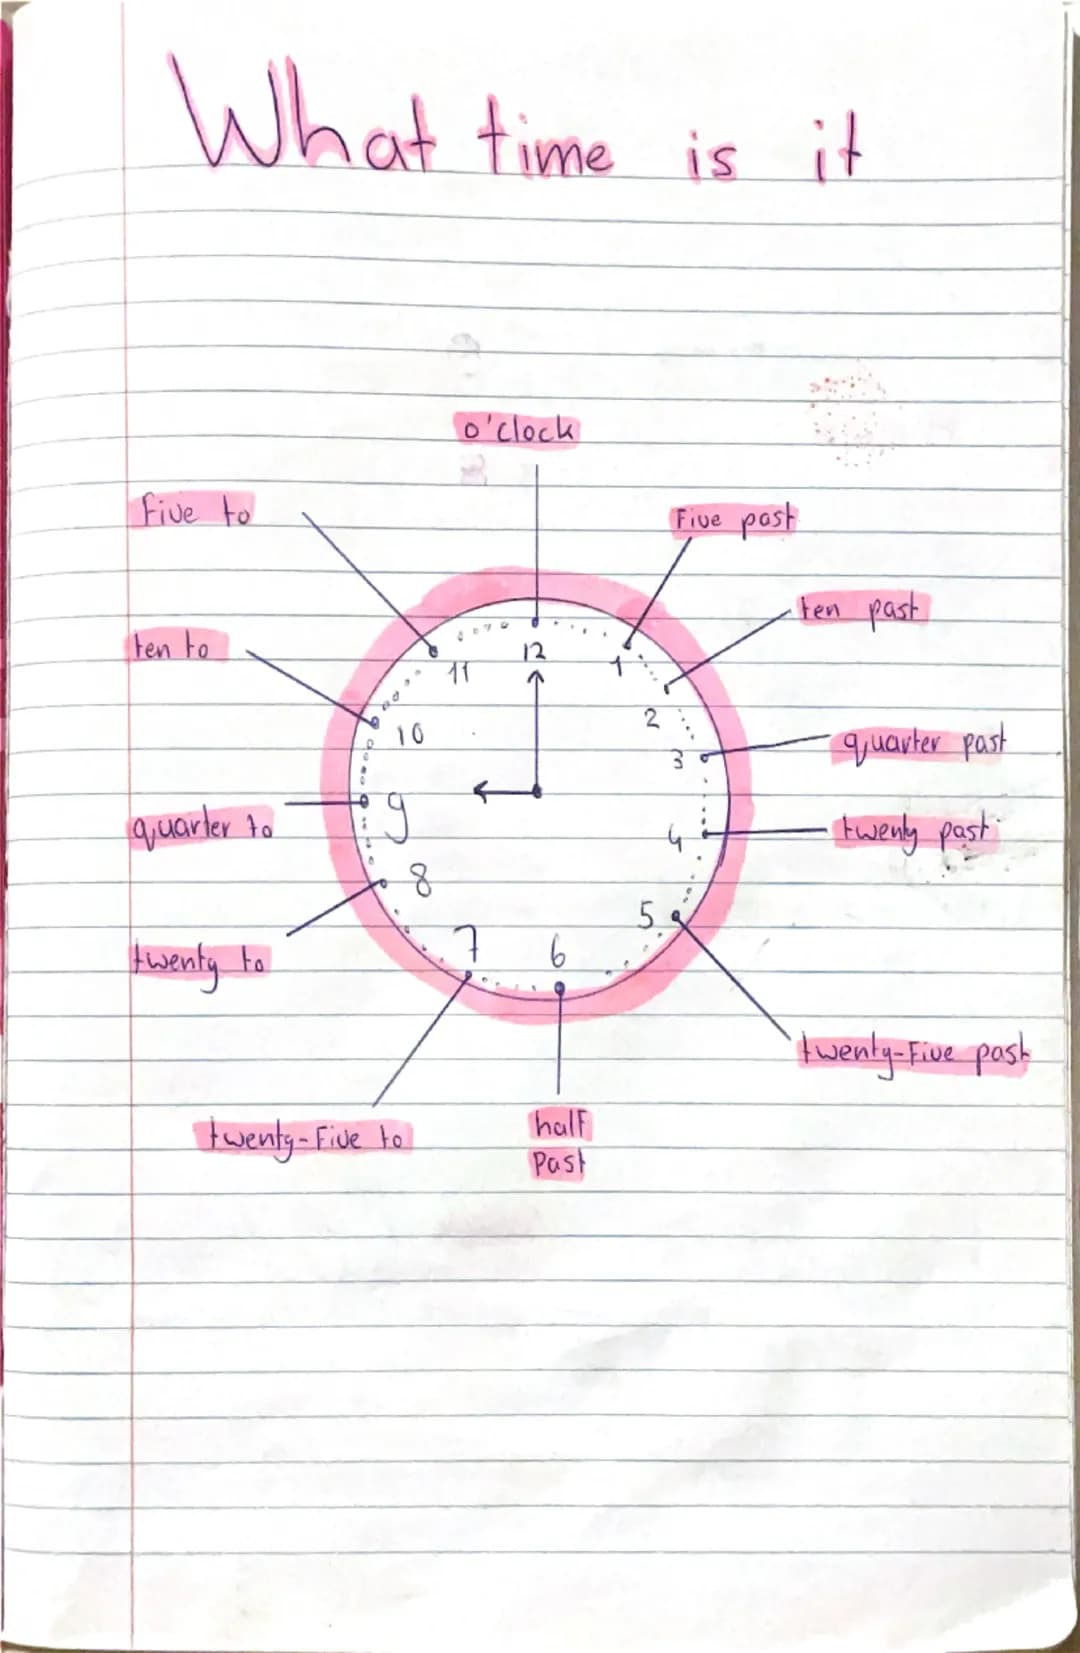 What time is it
o'clock
Five to
Five past
ten past
ten to
12
11
1
2
10
3
quarter past
quarter to
9
4
twenty past
8
5
twenty to
7
6
twenty-Five past
twenty-Five to
half
Past